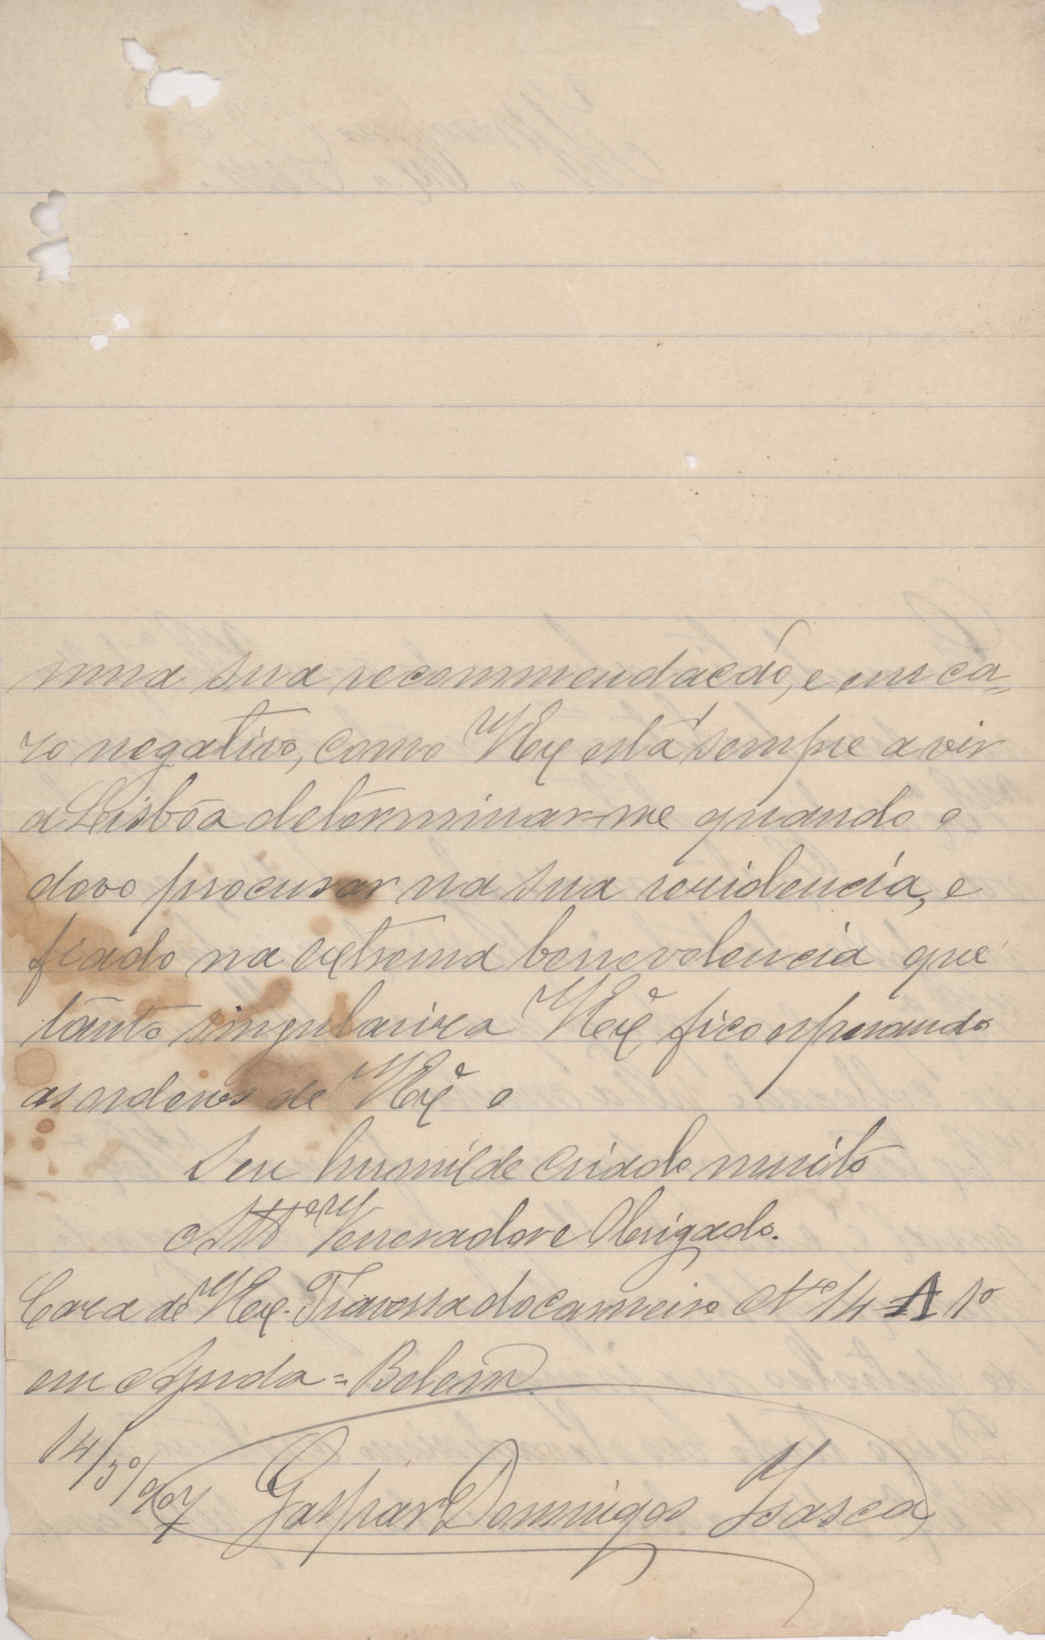 uma sua recommendação, e em ca=
zo negativo, como V Ex está sempre a vir
a Lisbôa determinar-me quando o
devo procurar na sua rezidencia, e
fiado na extrema benevolencia que
tanto singulariza V Exª, fico esperando
as ordens de V Exª o
Seu humilde criado muito
Attº Venerador e Obrigado.
Caza de V Ex. Travessa do carneiro Nº 14 A 1º
em Ajuda = Belem
Gaspar Domingos